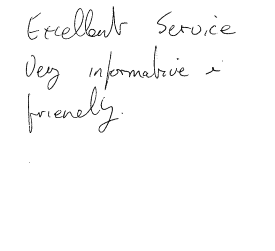 Excellent Service
Very informative &
friendly.